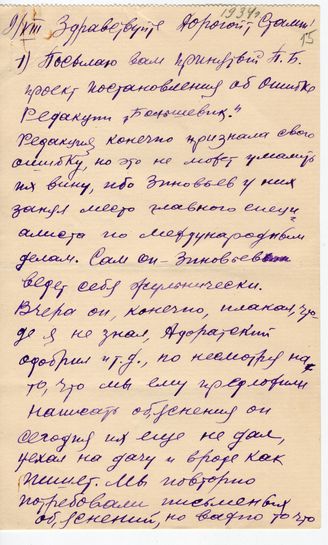 9/VIII Здравствуйте Дорогой Сталин!
1934г.
15
1) Посылаю вам принятый П.Б.
проект постановления об ошибке
Редакции "Большевик."
Редакция конечно признала свою
ошибку, но это не может умалить
их вину, ибо Зиновьев у них
занял место главного специ
алиста по международным
делам. Сам он - Зиновьев
ведет себя жульнически.
Вчера он, конечно, плакал, что-
де я не знал, Адоратский
одобрил и т.д., но несмотря на
то, что мы ему предложили
написать объяснения он
сегодня их еще не дал,
уехал на дачу и вроде как
пишет. Мы повторно
потребовали письменных
об,яснений, но важно то что